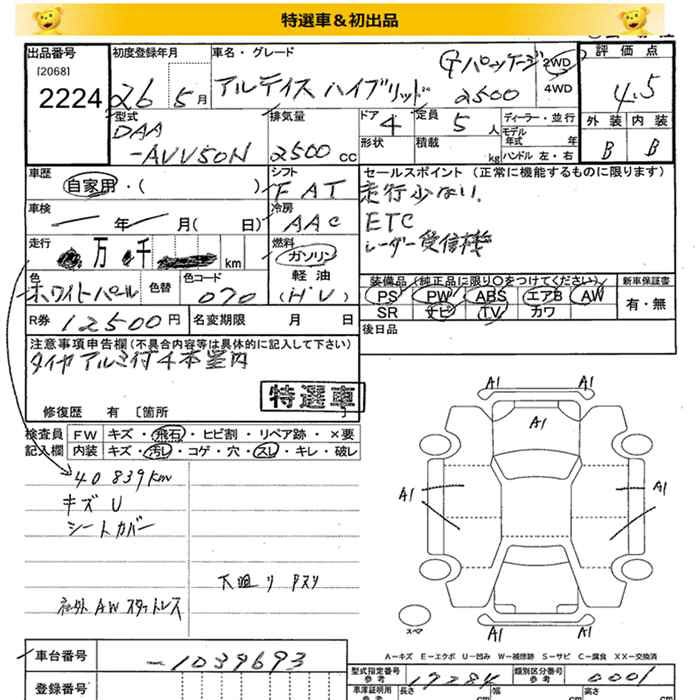 特選車＆初出品
出品番号
[2068]
2224
初度登録年月
26 5月
車名・グレード
アルティス ハイブリッド
Gパッケージ
2500
2WD
4WD
評価点
4.5
外装 内装
B B
型式
DAA
-AVV50N
排気量
2500 cc
ドア
4
形状
定員
5人
積載
kg
ディーラー・並行
モデル
年式 年
ハンドル 左・右
車歴
自家用・( )
シフト
FAT
セールスポイント (正常に機能するものに限ります)
走行少ない.
ETC
レーダー受信機
車検
年 月( 日)
冷房
AAC
走行
万 千 km
燃料
ガソリン
軽油
(HV)
装備品 (純正品に限り○をつけてください)
PS PW ABS エアB AW
SR ナビ TV カワ
新車保証書
有・無
色
ホワイトパール
色替
色コード
070
後日品
R券 12500円
名変期限 月 日
注意事項申告欄(不具合内容等は具体的に記入して下さい)
タイヤアルミ付4本室内
特選車
修復歴 有 [箇所 ]
検査員 FW キズ・飛石・ヒビ割・リペア跡・×要
記入欄 内装 キズ・汚レ・コゲ・穴・スレ・キレ・破レ
40839km
キズU
シートカバー
下廻り サスリ
社外AWスタットレス
A1 A1
A1
A1 A1
A1 A1
スペア
A－キズ E－エクボ U－凹み W－補修跡 S－サビ C－腐食 XX－交換済
車台番号
-1039693
登録番号
型式指定番号
参考
17284
類別区分番号
参考
0001
車庫証明用
参考
長さ
cm
幅
cm
高さ
cm